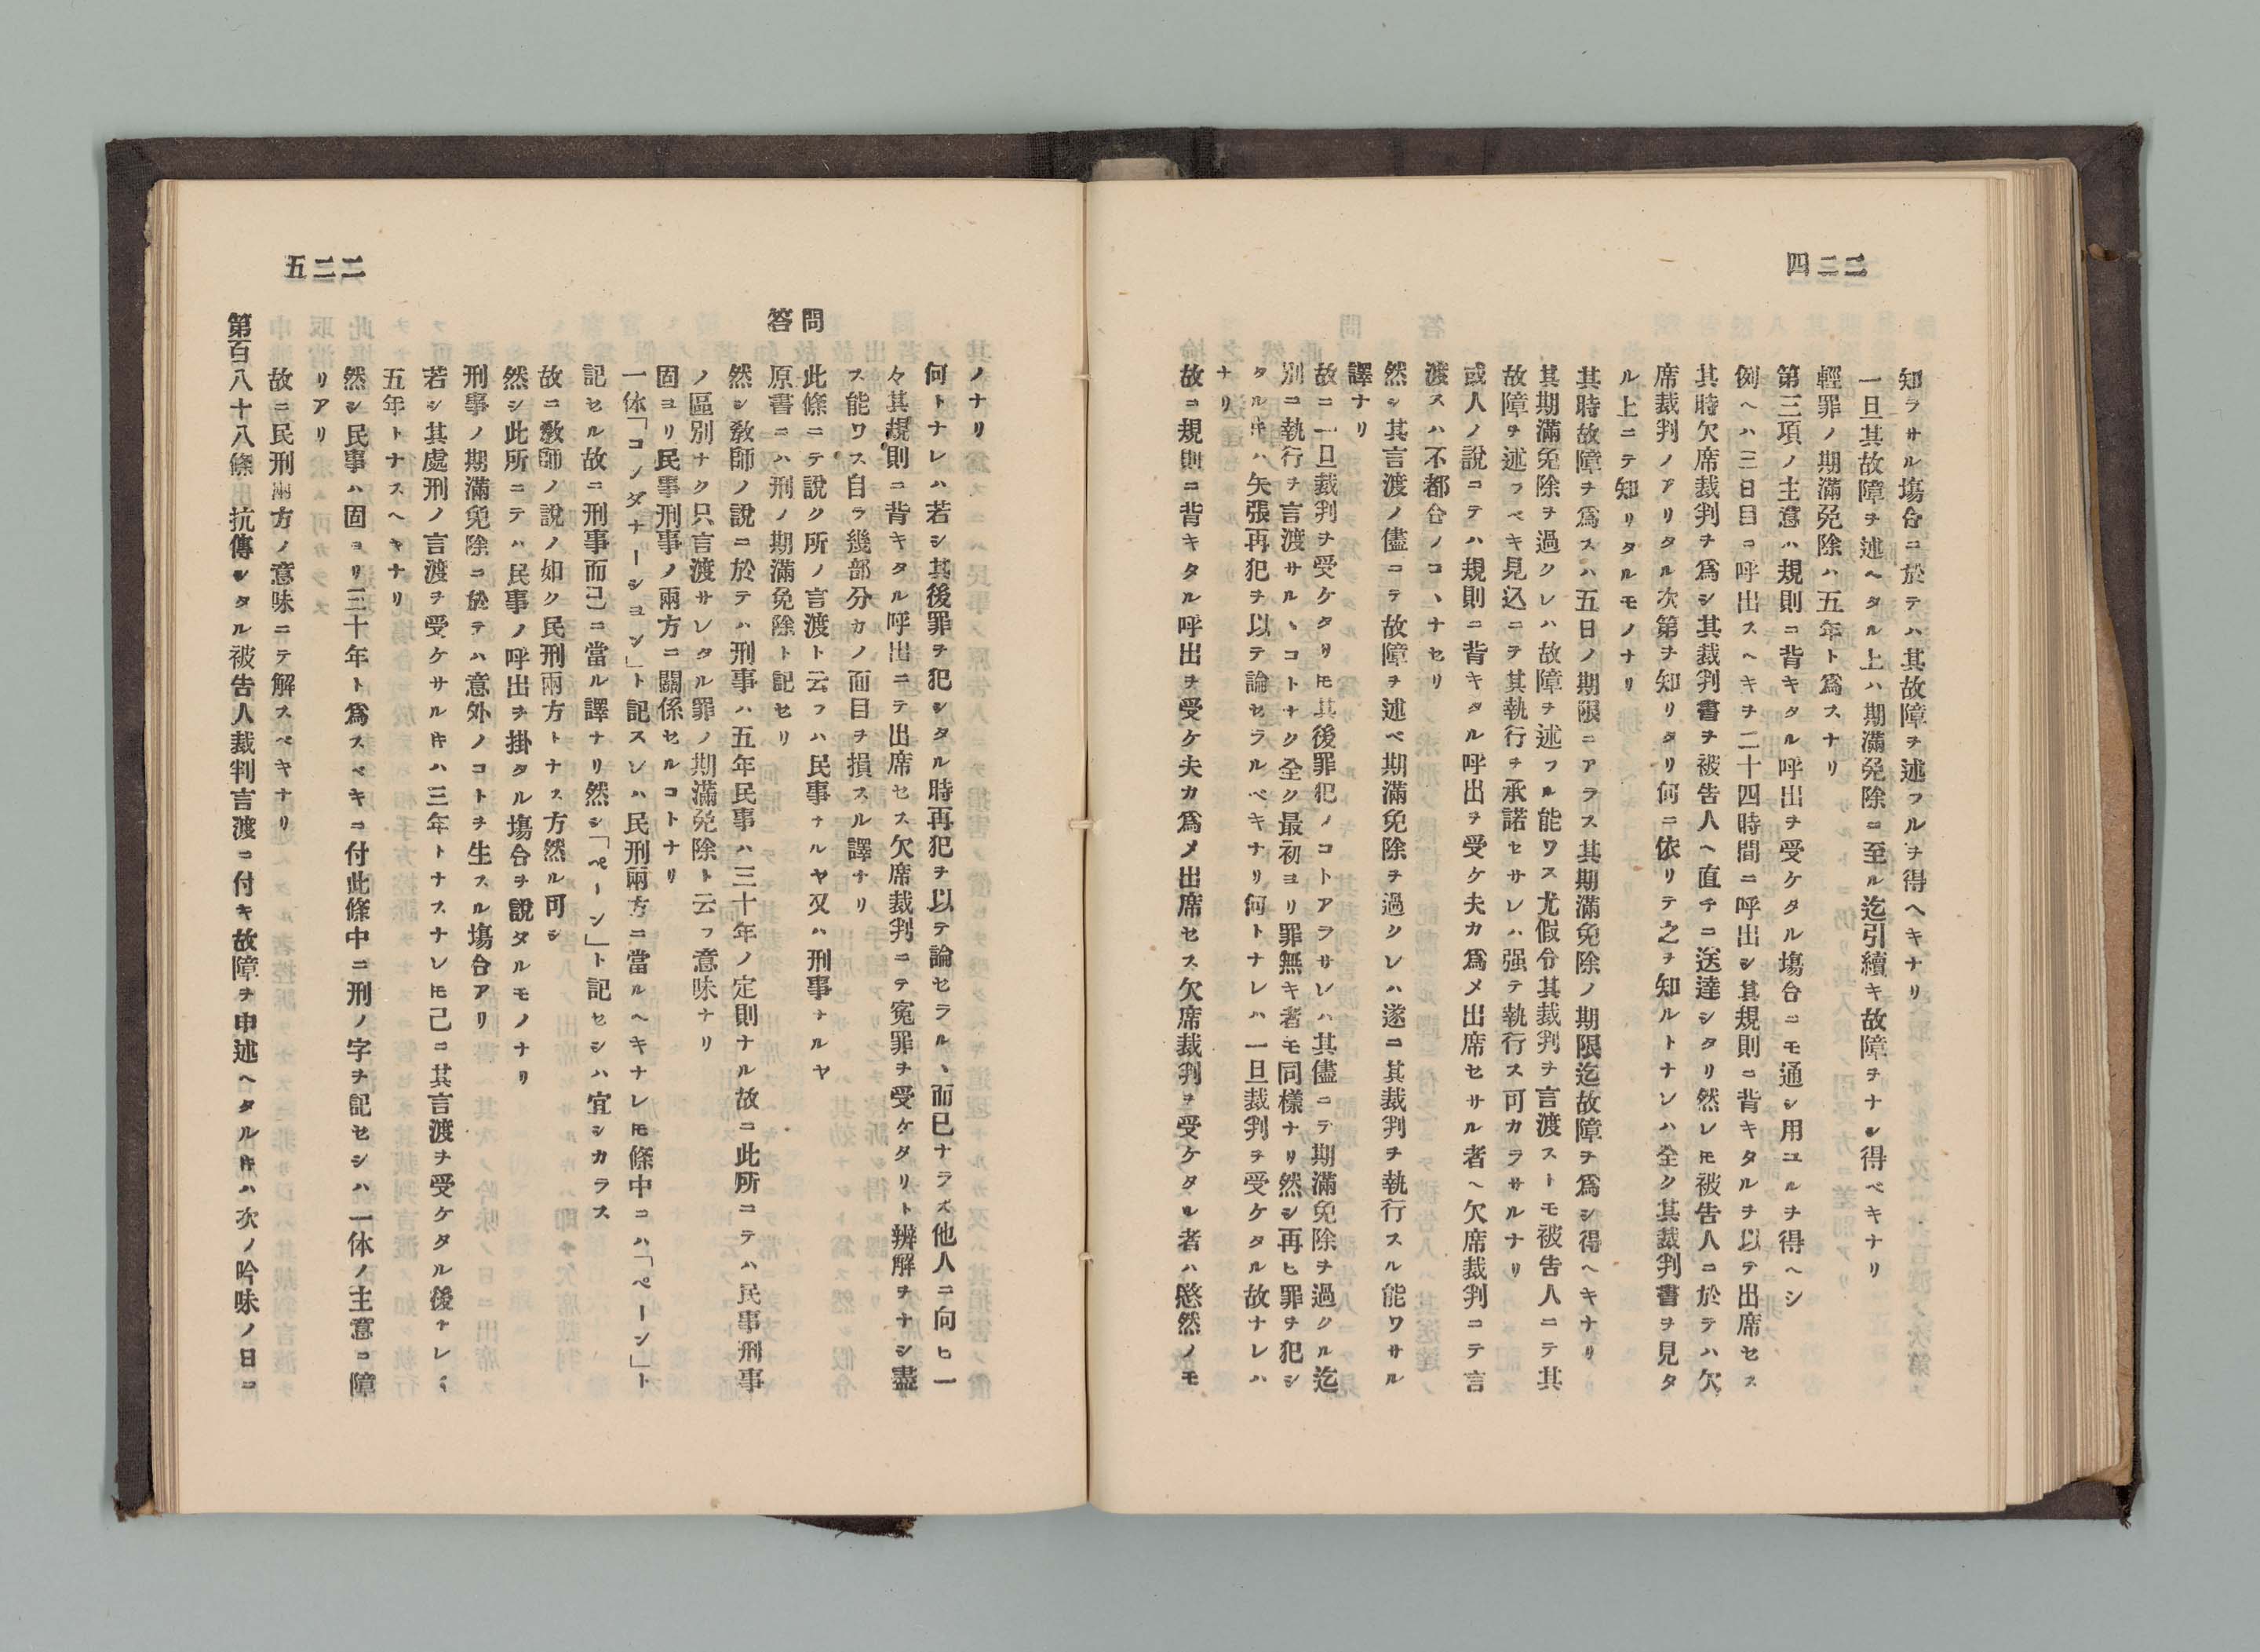 二二四
知ラサル塲合ニ於テハ其故障ヲ述フルヲ得ヘキナリ
一旦其故障ヲ述ヘタル上ハ期滿免除ニ至ル迄引續キ故障ヲナシ得ベキナリ
輕罪ノ期滿免除ハ五年ト爲スナリ
第三項ノ主意ハ規則ニ背キタル呼出ヲ受ケタル塲合ニモ通シ用ユルヲ得ヘシ
例ヘハ三日目ニ呼出スヘキヲ二十四時間ニ呼出シ其規則ニ背キタルヲ以テ出席セス
其時欠席裁判ヲ爲シ其裁判書ヲ被告人ヘ直チニ送達シタリ然レ𪜈被告人ニ於テハ欠
席裁判ノアリタル次第ヲ知リタリ何ニ依リテ之ヲ知ルトナレハ全ク其裁判書ヲ見タ
ル上ニテ知リタルモノナリ
其時故障ヲ爲スハ五日ノ期限ニアラス其期滿免除ノ期限迄故障ヲ爲シ得ヘキナリ
其期滿免除ヲ過クレハ故障ヲ述フル能ワス尤假令其裁判ヲ言渡ストモ被告人ニテ其
故障ヲ述フベキ見込ニテ其執行ヲ承諾セサレハ强テ執行ス可カラサルナリ
或人ノ說ニテハ規則ニ背キタル呼出ヲ受ケ夫カ爲メ出席セサル者ヘ欠席裁判ニテ言
渡スハ不都合ノコヽナセリ
然シ其言渡ノ儘ニテ故障ヲ述ベ期滿免除ヲ過クレハ遂ニ其裁判ヲ執行スル能ワサル
譯ナリ
故ニ一旦裁判ヲ受ケタリ𪜈其後罪犯ノコトアラサレハ其儘ニテ期滿免除ヲ過クル迄
別ニ執行ヲ言渡サルヽコトナク全ク最初ヨリ罪無キ者モ同樣ナリ然シ再ヒ罪ヲ犯シ
タル𪜈ハ矢張再犯ヲ以テ論セラルベキナリ何トナレハ一旦裁判ヲ受ケタル故ナレハ
ナリ
故ニ規則ニ背キタル呼出ヲ受ケ夫カ爲メ出席セス欠席裁判ヲ受ケタル者ハ愍然ノモ
二二五
ノナリ
何トナレハ若シ其後罪ヲ犯シタル時再犯ヲ以テ論セラルヽ而已ナラズ他人ニ向ヒ一
々其規則ニ背キタル呼出ニテ出席セス欠席裁判ニテ寃罪ヲ受ケタリト辨解ヲナシ盡
ス能ワス自ラ幾部分カノ面目ヲ損スル譯ナリ
問 此條ニテ說ク所ノ言渡ト云フハ民事ナルヤ又ハ刑事ナルヤ
答 原書ニハ刑ノ期滿免除ト記セリ
然シ敎師ノ說ニ於テハ刑事ハ五年民事ハ三十年ノ定則ナル故ニ此所ニテハ民事刑事
ノ區別ナク只言渡サレタル罪ノ期滿免除ト云フ意味ナリ
固ヨリ民事刑事ノ兩方ニ關係セルコトナリ
一体「コンダナーション」ト記スレハ民刑兩方ニ當ルヘキナレ𪜈條中ニハ「ペーン」ト
記セル故ニ刑事而已ニ當ル譯ナリ然シ「ペーン」ト記セシハ宜シカラス
故ニ敎師ノ說ノ如ク民刑兩方トナス方然ル可シ
然シ此所ニテハ民事ノ呼出ヲ掛タル塲合ヲ說タルモノナリ
刑事ノ期滿免除ニ於テハ意外ノコトヲ生スル塲合アリ
若シ其處刑ノ言渡ヲ受ケサル𪜈ハ三年トナスナレ𪜈己ニ其言渡ヲ受ケタル後ナレハ
五年トナスヘキナリ
然シ民事ハ固ヨリ三十年ト爲スベキニ付此條中ニ刑ノ字ヲ記セシハ一体ノ主意ニ障
リアリ
故ニ民刑兩方ノ意味ニテ解スベキナリ
第百八十八條 抗傳シタル被告人裁判言渡ニ付キ故障ヲ申述ヘタル𪜈ハ次ノ吟味ノ日ニ